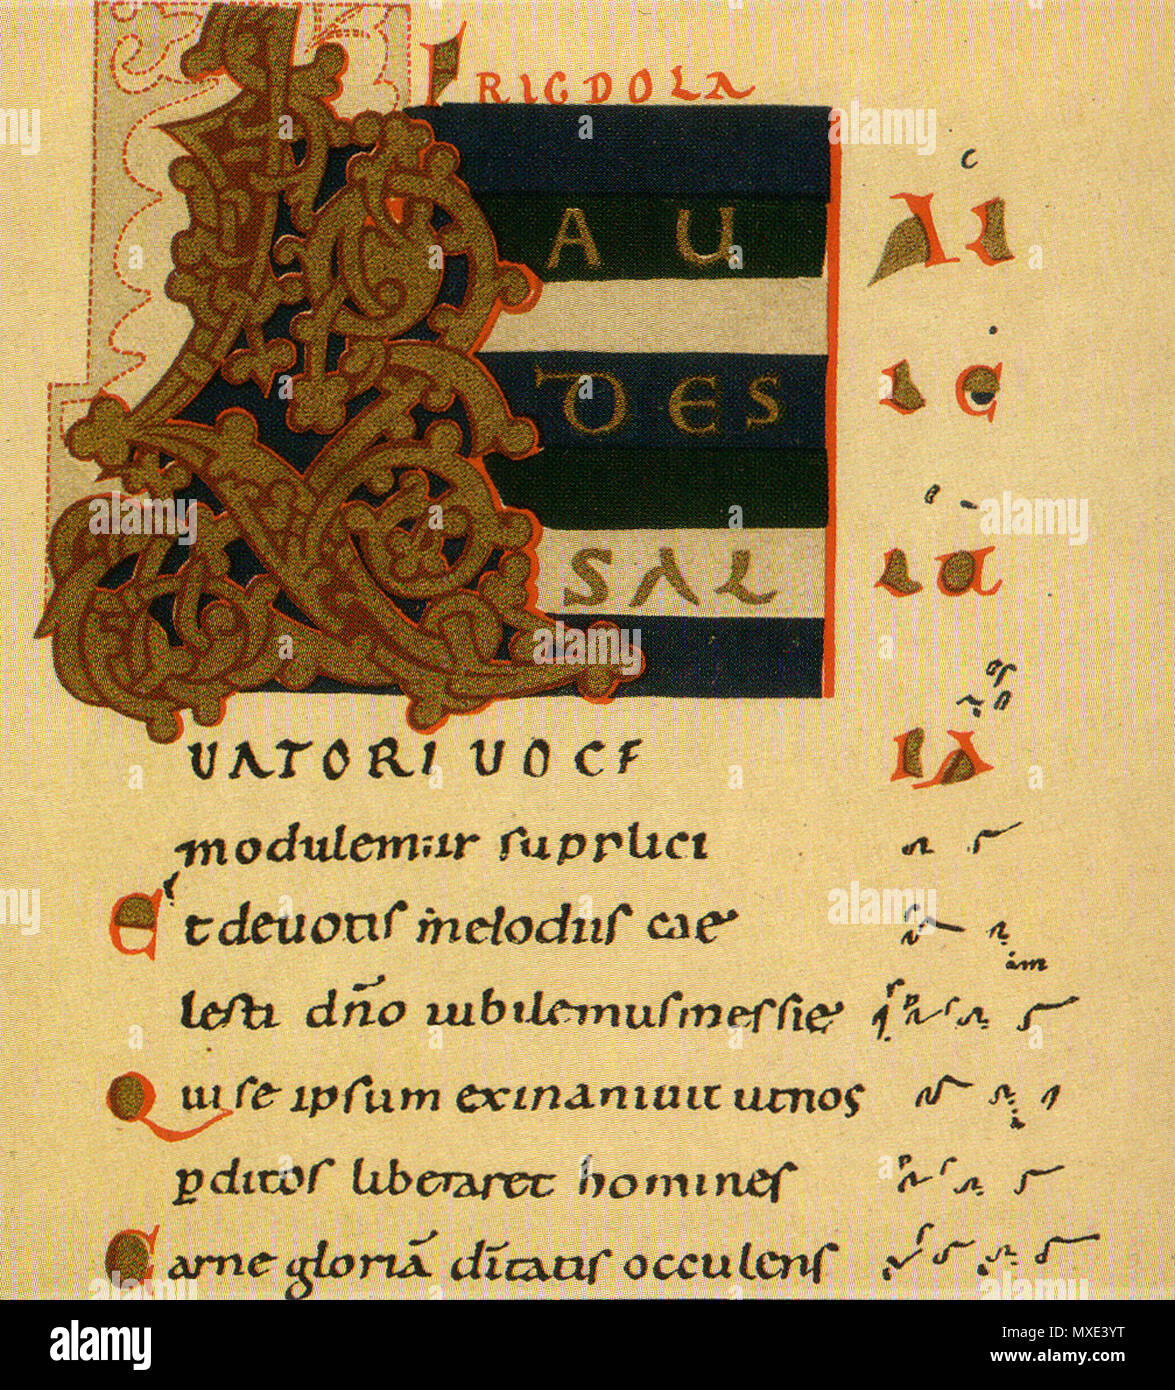 FRIGDOLA
LAU
DES
SAL
UATORI UOCE
modulemur supplici
Et deuotis melodiis cae
lesti dño iubilemus messie
Qui se ipsum exinaniuit ut nos
pditos liberaret homines
Carne gloriā dītatis occulens
Al
le
lu
ia
alamy
alamy
Image ID: MXE3YT
www.alamy.com